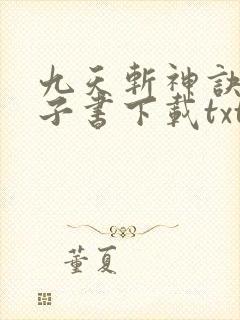 九天斬神訣
子書下載txt
董夏